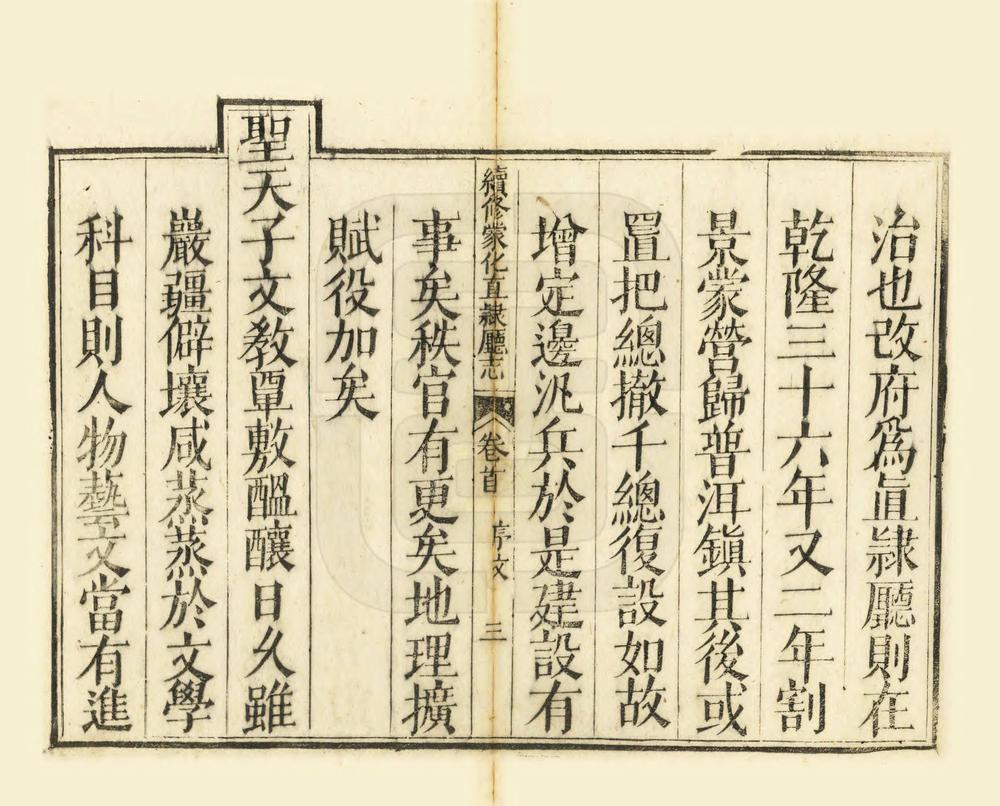 治也改府爲直隷廳則在
乾隆三十六年又二年割
景蒙營歸普洱鎮其後或
置把總撤千總復設如故
增定邊汛兵於是建設有
事矣秩官有更矣地理擴
賦役加矣
聖天子文教覃敷醞釀日久雖
嚴疆僻壤咸蒸蒸於文學
科目則人物藝文當有進
續修蒙化直隷廳志
卷首
序文
三